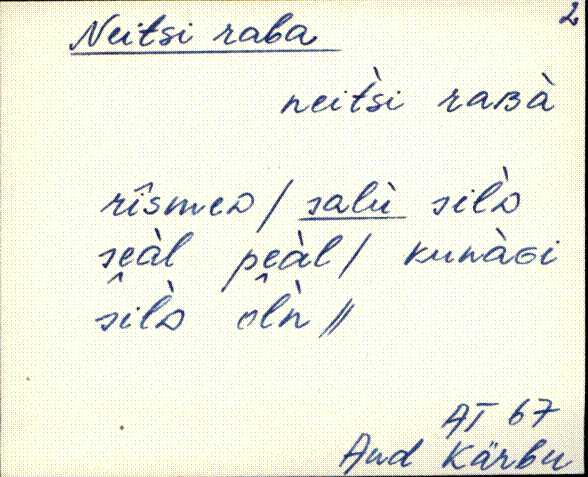 2
Neitsi raba
neit̀si raʙà
rîsmeᴅ / salù silᴅ̀
seàl peàl / kunàɢi
sîlᴅ̀ ôlǹ //
AT 67
Aud Kärbu